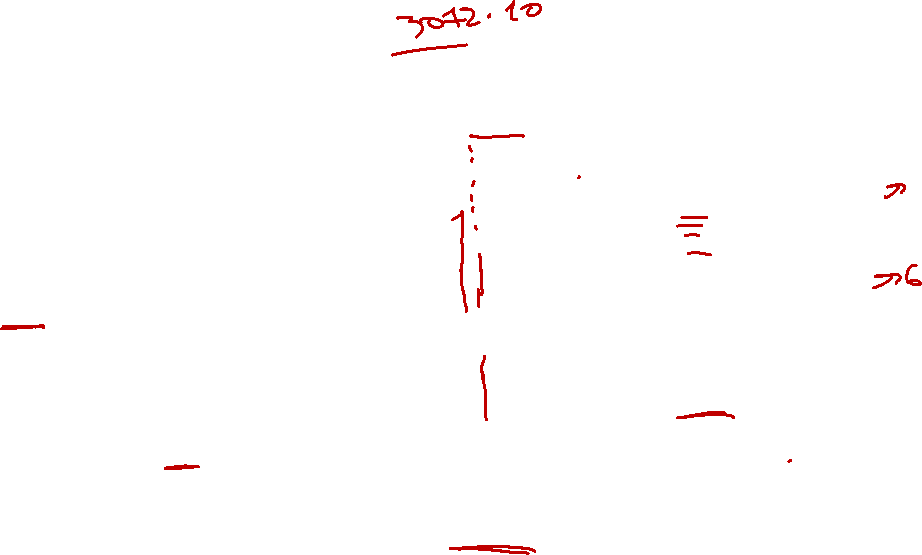 3072.10
→
→6